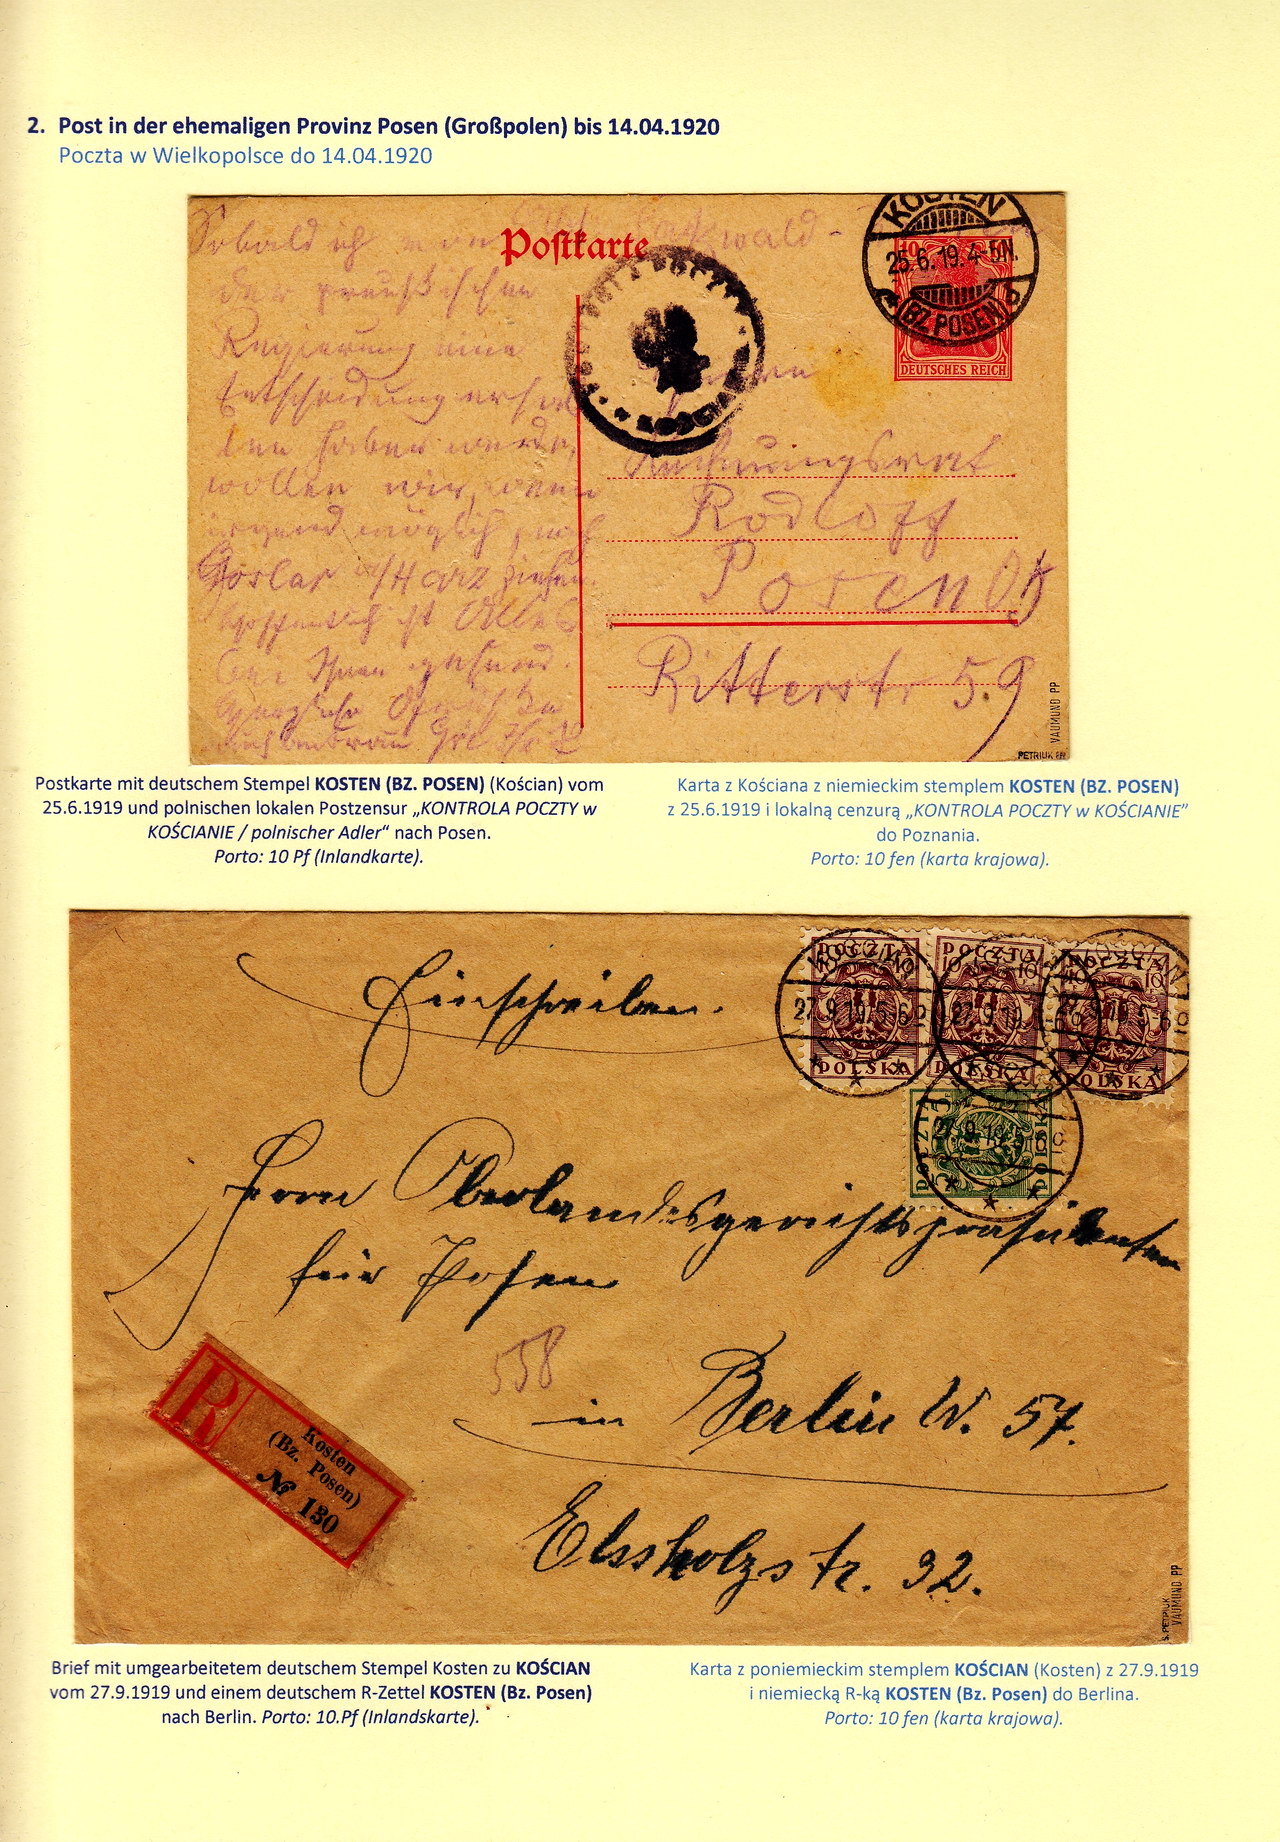 2. Post in der ehemaligen Provinz Posen (Großpolen) bis 14.04.1920
Poczta w Wielkopolsce do 14.04.1920
Sobald ich von
wald-
der preußischen
Regierung eine
Entscheidung
haben werde,
wollen wir, wenn
irgend möglich, nach
Goslar a/Harz ziehen.
Hoffentlich ist Alles
bei Ihnen gesund.
Herzliche Grüße
Postkarte
KOSTEN
25.6.19.4-5N.
(BZ. POSEN)
DEUTSCHES REICH
POCZTY
KOŚCIA
Rechnungsrat
Rodloff
Posen O5
Ritterstr 59
VAUMUND PP
PETRIUK
Postkarte mit deutschem Stempel KOSTEN (BZ. POSEN) (Kościan) vom
25.6.1919 und polnischen lokalen Postzensur „KONTROLA POCZTY w
KOŚCIANIE / polnischer Adler“ nach Posen.
Porto: 10 Pf (Inlandkarte).
Karta z Kościana z niemieckim stemplem KOSTEN (BZ. POSEN)
z 25.6.1919 i lokalną cenzurą „KONTROLA POCZTY w KOŚCIANIE”
do Poznania.
Porto: 10 fen (karta krajowa).
Einschreiben.
POCZTA POCZTA POCZTA
10 10 10
KOŚCIAN
27.9.19.5-6
POLSKA POLSKA POLSKA
POCZTA POLSKA
Herrn Oberlandesgerichtspräsidenten
für Posen
558
in Berlin W. 57.
Elssholzstr. 32.
R
Kosten
(Bz. Posen)
№ 130
S. PETRIUK
VAUMUND PP
Brief mit umgearbeitetem deutschem Stempel Kosten zu KOŚCIAN
vom 27.9.1919 und einem deutschem R-Zettel KOSTEN (Bz. Posen)
nach Berlin. Porto: 10.Pf (Inlandskarte).
Karta z poniemieckim stemplem KOŚCIAN (Kosten) z 27.9.1919
i niemiecką R-ką KOSTEN (Bz. Posen) do Berlina.
Porto: 10 fen (karta krajowa).